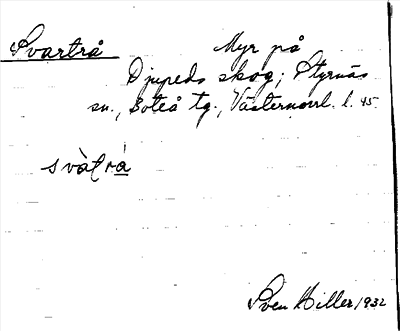 Svartrå Myr på
Djupeds skog; Styrnäs
sn., Boteå tg., Västernorrl. l. 45
svàʈrá
Sven Hiller 1932